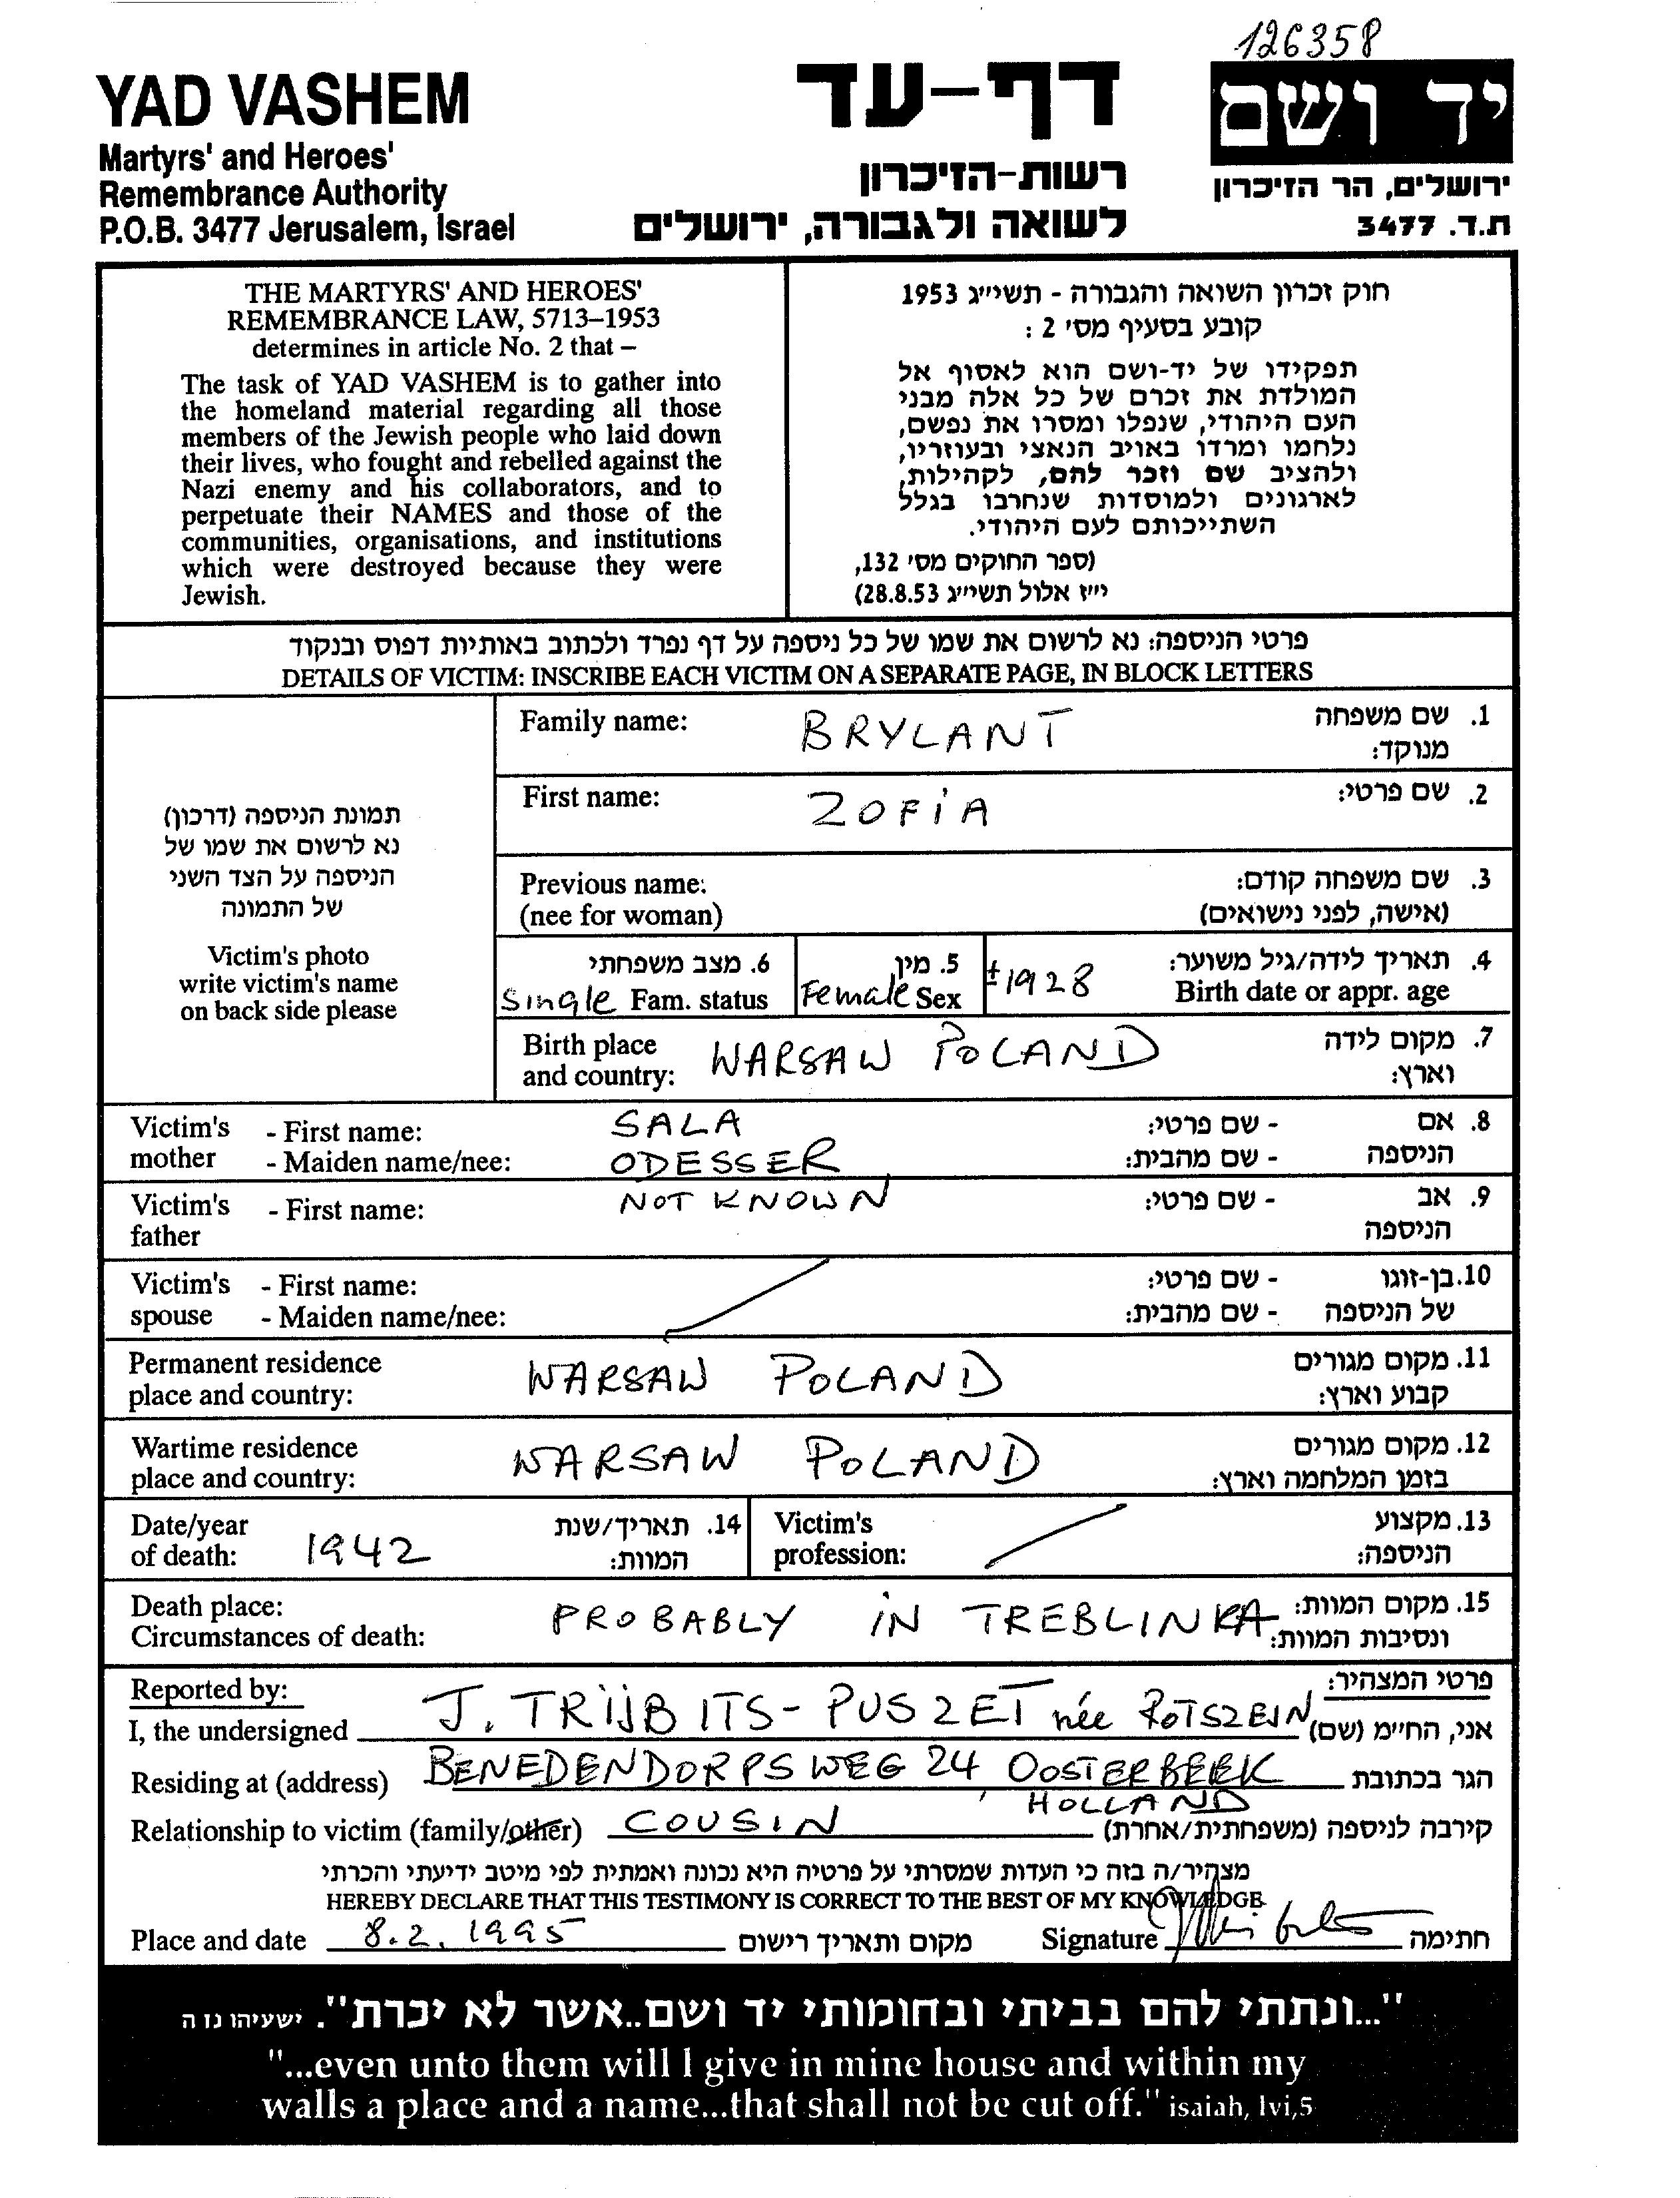 126358
YAD VASHEM
Martyrs' and Heroes'
Remembrance Authority
P.O.B. 3477 Jerusalem, Israel
דף-עד
רשות-הזיכרון
לשואה ולגבורה, ירושלים
יד ושם
ירושלים, הר הזיכרון
ת.ד. 3477
THE MARTYRS' AND HEROES'
REMEMBRANCE LAW, 5713–1953
determines in article No. 2 that –
The task of YAD VASHEM is to gather into
the homeland material regarding all those
members of the Jewish people who laid down
their lives, who fought and rebelled against the
Nazi enemy and his collaborators, and to
perpetuate their NAMES and those of the
communities, organisations, and institutions
which were destroyed because they were
Jewish.
חוק זכרון השואה והגבורה - תשי״ג 1953
קובע בסעיף מס׳ 2 :
תפקידו של יד-ושם הוא לאסוף אל
המולדת את זכרם של כל אלה מבני
העם היהודי, שנפלו ומסרו את נפשם,
נלחמו ומרדו באויב הנאצי ובעוזריו,
ולהציב שם וזכר להם, לקהילות,
לארגונים ולמוסדות שנחרבו בגלל
השתייכותם לעם היהודי.
(ספר החוקים מס׳ 132,
י״ז אלול תשי״ג 28.8.53)
פרטי הניספה: נא לרשום את שמו של כל ניספה על דף נפרד ולכתוב באותיות דפוס ובנקוד
DETAILS OF VICTIM: INSCRIBE EACH VICTIM ON A SEPARATE PAGE, IN BLOCK LETTERS
תמונת הניספה (דרכון)
נא לרשום את שמו של
הניספה על הצד השני
של התמונה
Victim's photo
write victim's name
on back side please
Family name: BRYLANT 1. שם משפחה
מנוקד:
First name: ZOFiA 2. שם פרטי:
Previous name: 3. שם משפחה קודם:
(nee for woman) (אישה, לפני נישואים)
6. מצב משפחתי 5. מין 4. תאריך לידה/גיל משוער:
Single Fam. status Female Sex ±1928 Birth date or appr. age
Birth place WARSAW POLAND 7. מקום לידה
and country: וארץ:
Victim's - First name: SALA - שם פרטי: 8. אם
mother - Maiden name/nee: ODESSER - שם מהבית: הניספה
Victim's - First name: NOT KNOWN - שם פרטי: 9. אב
father הניספה
Victim's - First name: - שם פרטי: 10. בן-זוגו
spouse - Maiden name/nee: - שם מהבית: של הניספה
Permanent residence WARSAW POLAND 11. מקום מגורים
place and country: קבוע וארץ:
Wartime residence WARSAW POLAND 12. מקום מגורים
place and country: בזמן המלחמה וארץ:
Date/year 14. תאריך/שנת Victim's 13. מקצוע
of death: 1942 המוות: profession: הניספה:
Death place: PROBABLY iN TREBLINKA 15. מקום המוות:
Circumstances of death: ונסיבות המוות:
Reported by: פרטי המצהיר:
I, the undersigned J. TRIJBITS-PUSZET née ROTSZEJN אני, החי״מ (שם)
Residing at (address) BENEDENDORPSWEG 24 OOSTERBEEK הגר בכתובת
HOLLAND
Relationship to victim (family/other) COUSIN קירבה לניספה (משפחתית/אחרת)
מצהיר/ה בזה כי העדות שמסרתי על פרטיה היא נכונה ואמתית לפי מיטב ידיעתי והכרתי
HEREBY DECLARE THAT THIS TESTIMONY IS CORRECT TO THE BEST OF MY KNOWLEDGE
Place and date 8.2.1995 מקום ותאריך רישום Signature חתימה
"...ונתתי להם בביתי ובחומותי יד ושם..אשר לא יכרת". ישעיהו נו ה
"...even unto them will I give in mine house and within my
walls a place and a name...that shall not be cut off." isaiah, lvi,5